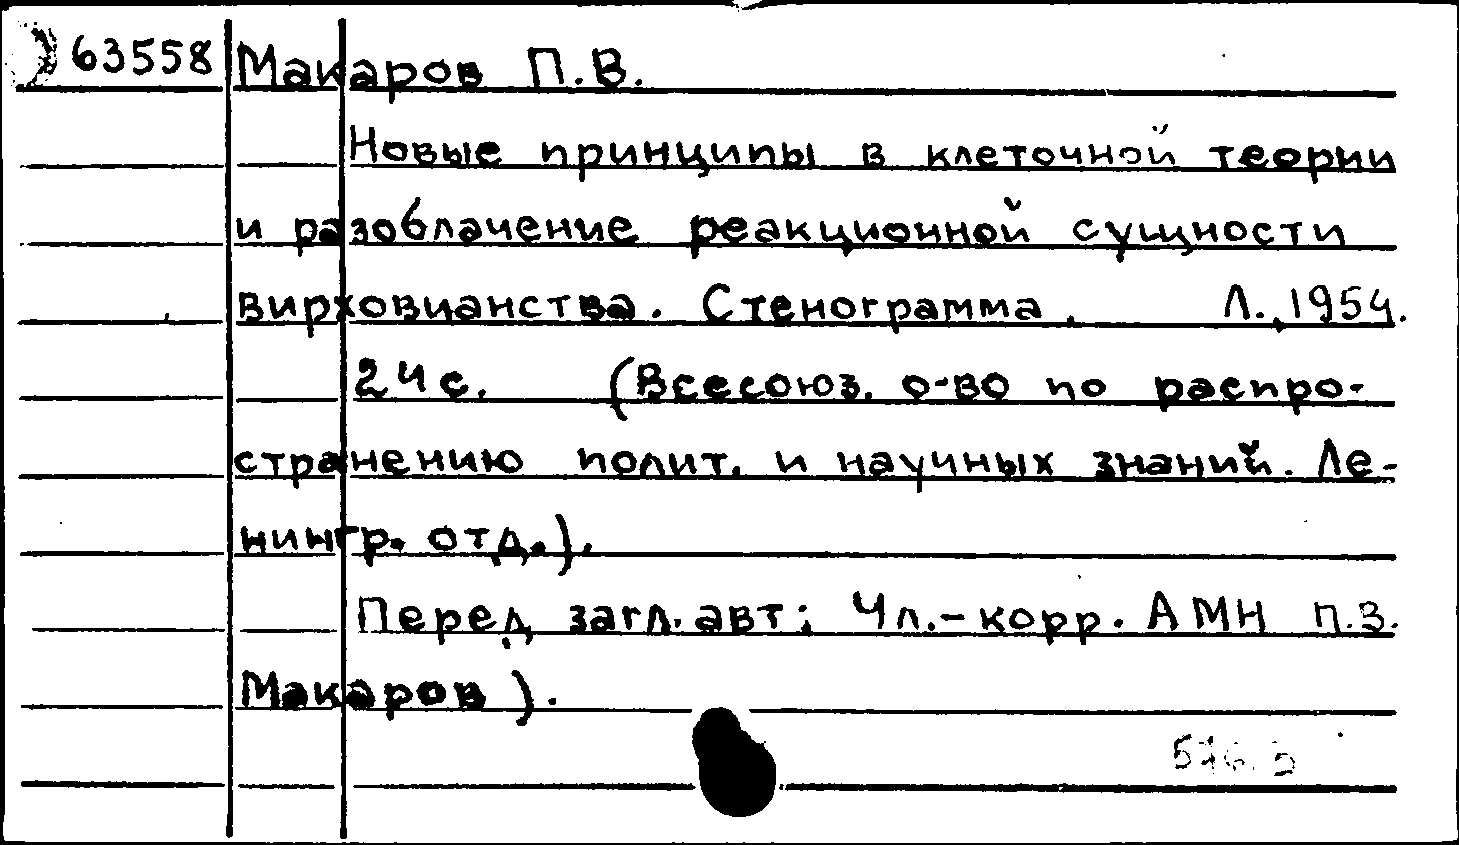 63558 Макаров П.В.
Новые принципы в клеточной теории
и разоблачение реакционной сущности
вирховианства. Стенограмма. Л., 1954.
24 с. (Всесоюз. о-во по распро-
странению полит. и научных знаний. Ле-
нингр. отд.).
Перед загл. авт: Чл.-корр. АМН П.З.
Макаров).
576.3